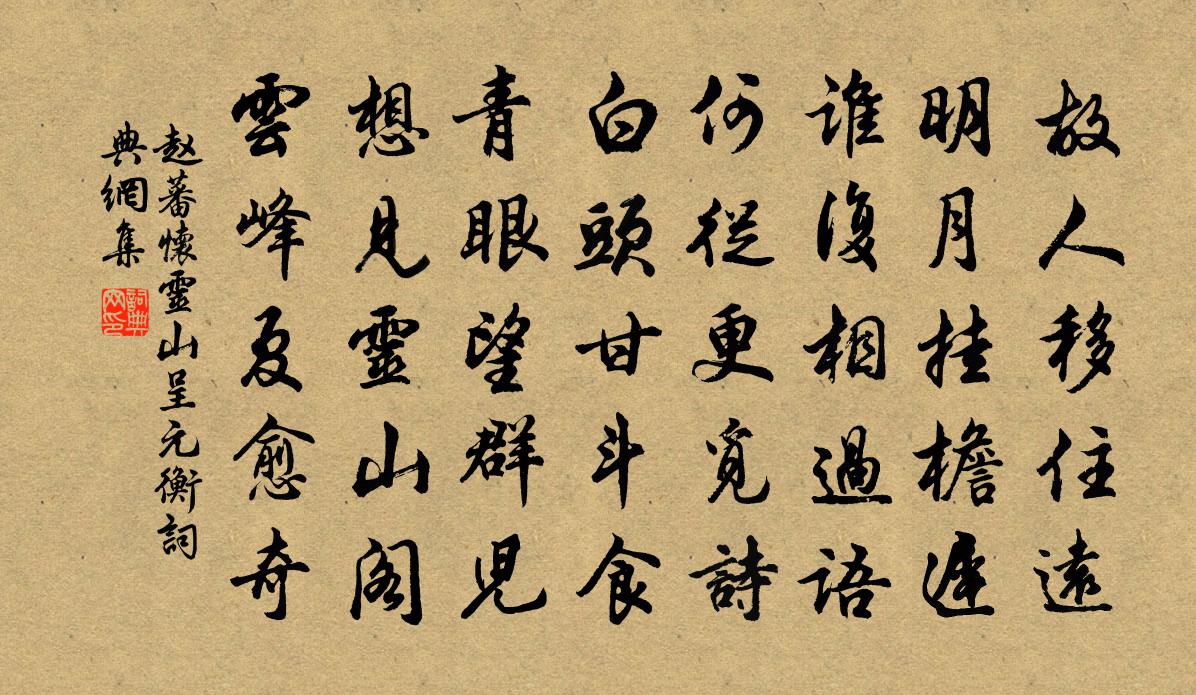 故人移住遠
明月挂檐遲
誰復相過語
何從更覓詩
白頭甘斗食
青眼望群児
想見靈山閣
雲峰夏愈奇
赵蕃懷靈山呈元衡詞
典網集
詞典网印